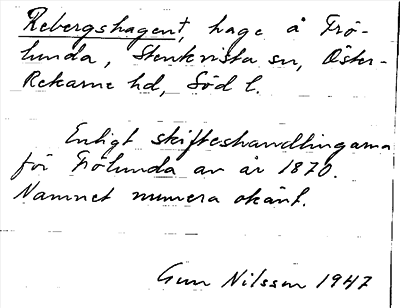 Rebergshagent, hage å Frö-
lunda, Stenkvista sn, Öster-
Rekarne hd, Söd l.
Enligt skifteshandlingarna
för Frölunda av år 1870.
Namnet numera okänt.
Gun Nilsson 1947